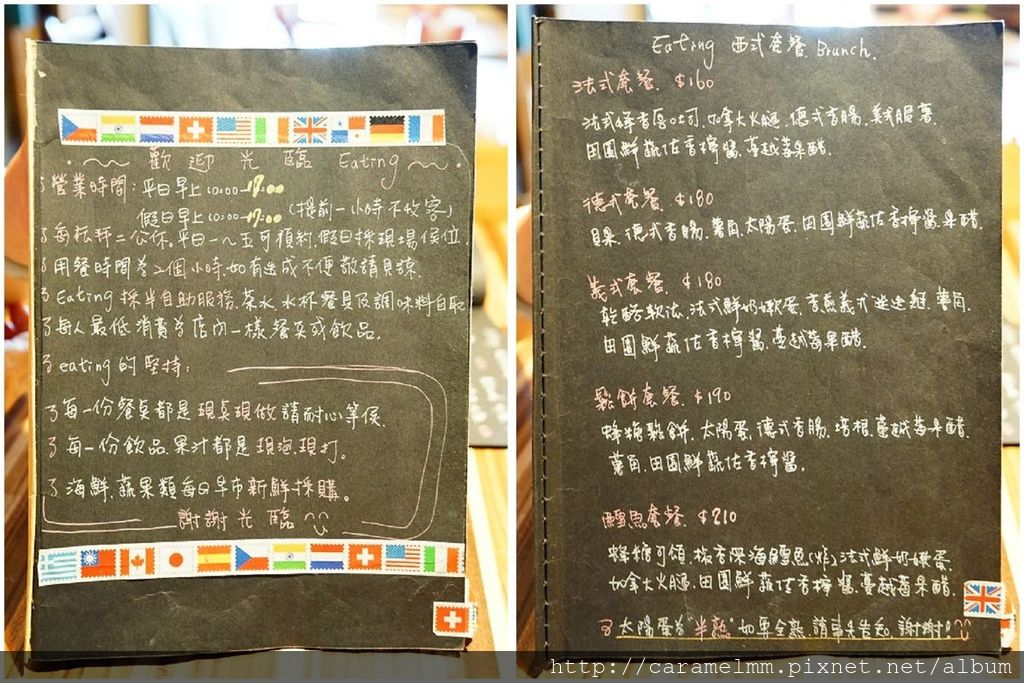 歡迎光臨 Eating
營業時間: 平日早上 10:00-17:00
假日早上 10:00-17:00 (提前一小時不收客)
平日一~五可預約,假日採現場候位.
用餐時間為2個小時,如有造成不便敬請見諒.
Eating 採半自助服務,茶水,水杯餐具及調味料自取
每人最低消費為店內一樣餐點或飲品.
eating的堅持:
每一份餐點都是現點現做請耐心等候.
每一份飲品果汁都是現泡現打。
海鮮.蔬果類每日早市新鮮採購。
謝謝光臨
Eating 西式套餐 Brunch.
法式套餐. $160
法式香厚吐司.加拿大火腿.德式香腸.美式脆薯.
田園鮮蔬佐香檸醬.蔓越莓果醋.
德式套餐. $180
貝果.德式香腸.薯角.太陽蛋.田園鮮蔬佐香檸醬.果醋.
義式套餐. $180
乾酪軟法.法式鮮奶嫩蛋.香煎義式迷迭雞.薯角.
田園鮮蔬佐香檸醬.蔓越莓果醋.
鬆餅套餐. $190
蜂糖鬆餅.太陽蛋.德式香腸.培根.蔓越莓果醋.
薯角.田園鮮蔬佐香檸醬.
鱈魚套餐. $210
蜂糖可頌.板香深海鱈魚(炸).法式鮮奶嫩蛋.
加拿大火腿.田園鮮蔬佐香檸醬.蔓越莓果醋.
太陽蛋為"半熟"如要全熟.請事先告知.謝謝!
http://caramelmm.pixnet.net/album